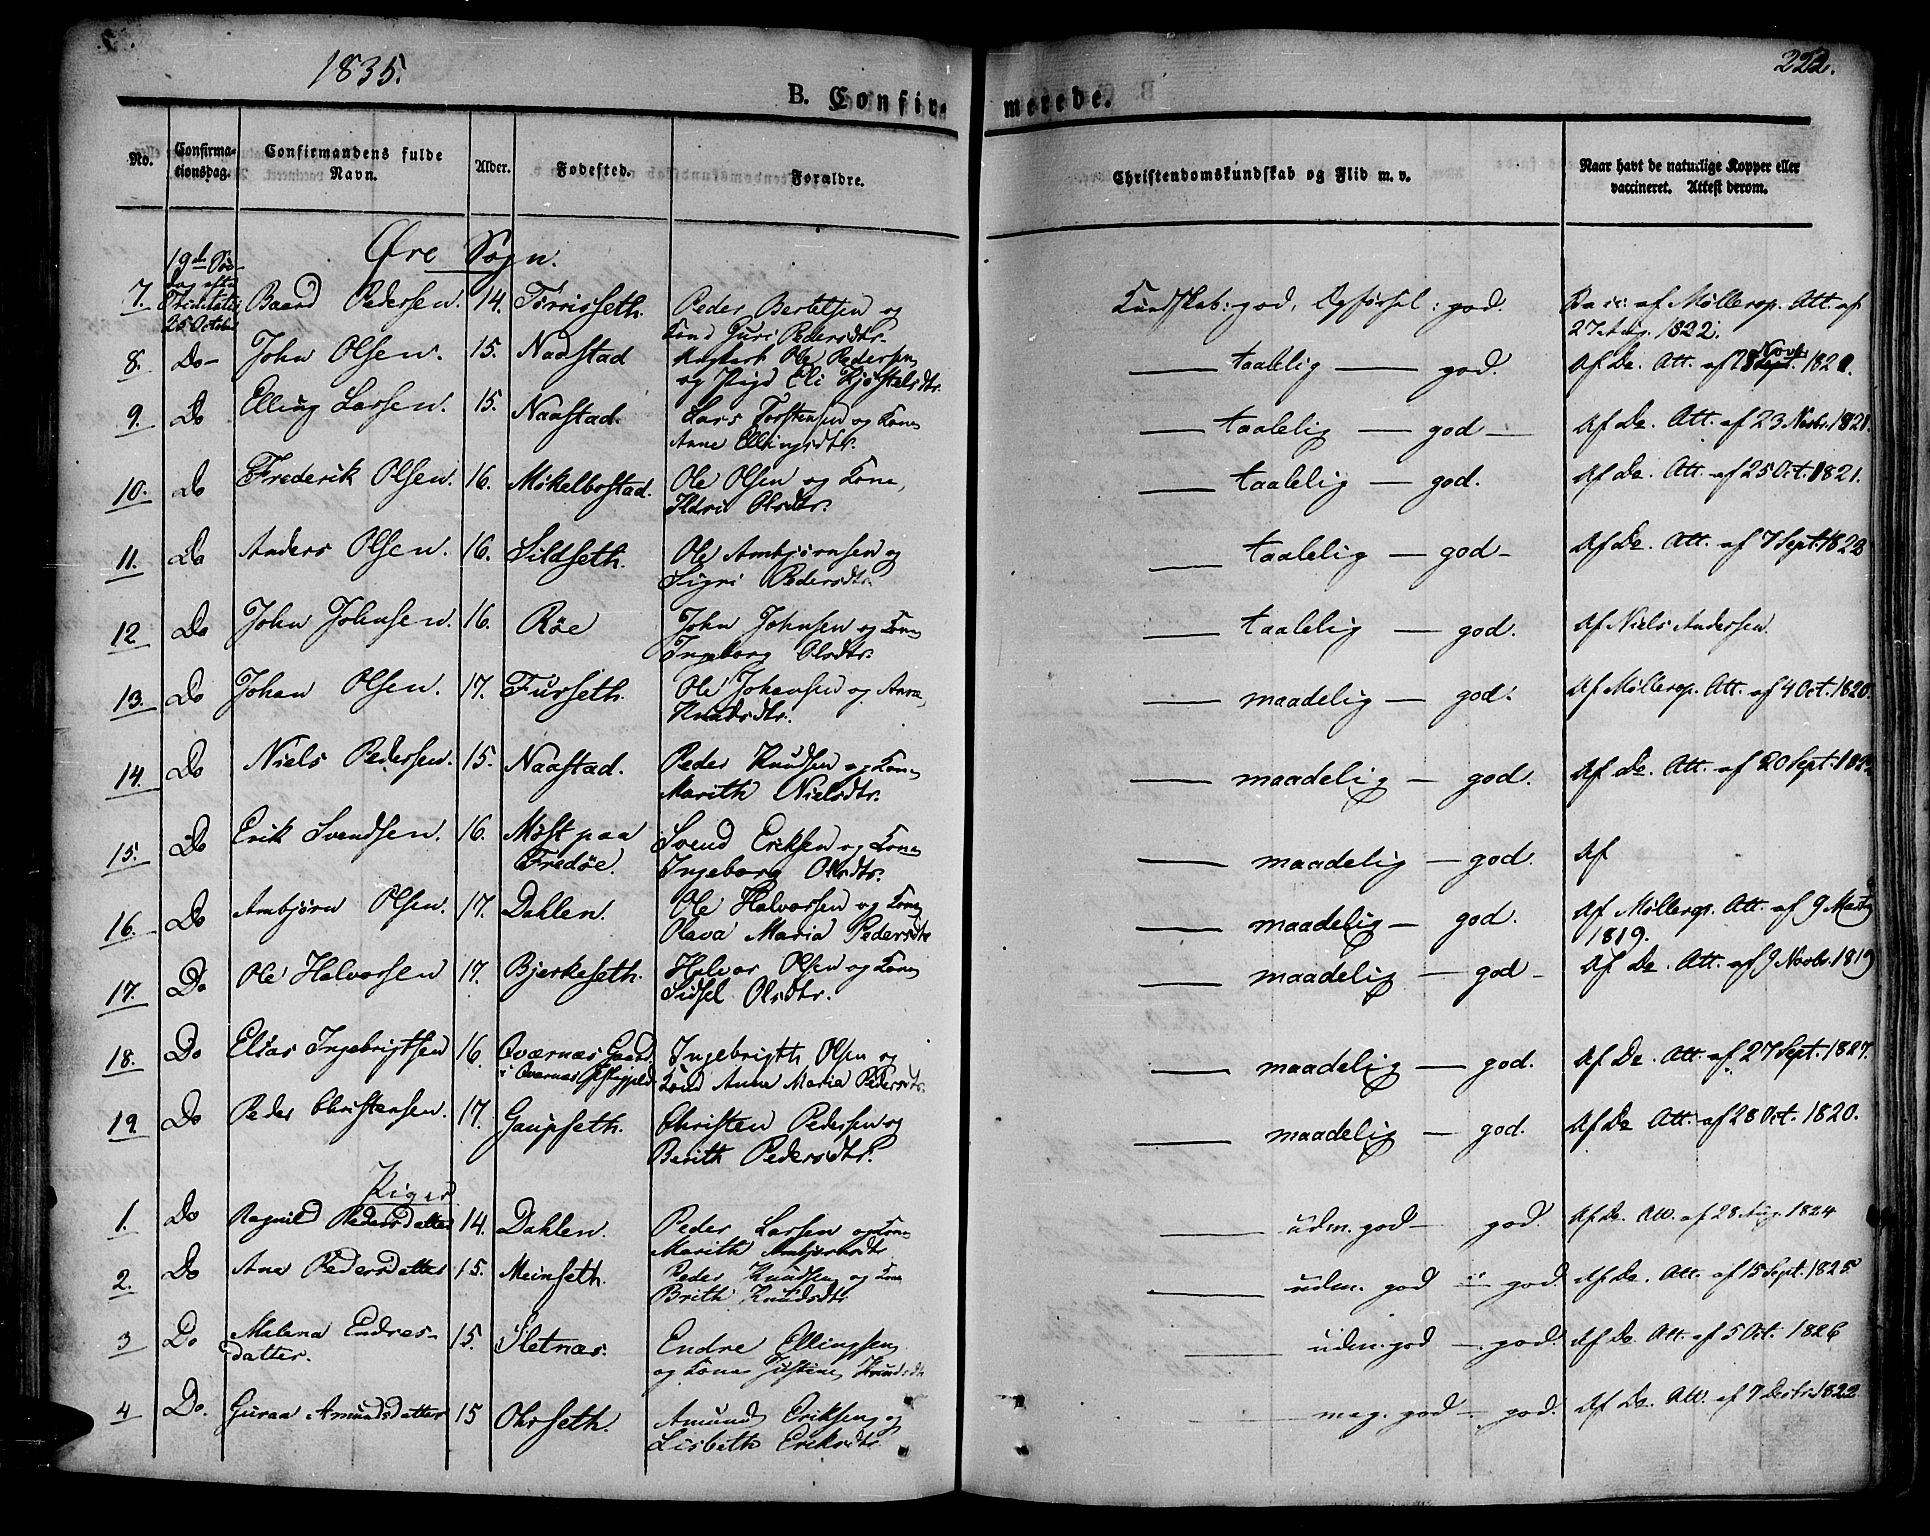 1835.
222.
B. Confirmerede.
No.
Confirmationsdag.
Confirmandens fulde Navn.
Alder.
Fødested.
Forældre.
Christendomskundskab og Flid m. v.
Naar havt de naturlige Kopper eller vaccineret. Attest derom.
Øre Sogn.
19de Søndag efter Trinitatis 25 October
7. Baard Pedersen. 14. Torrisseth. Peder Bertelsen og Kundskab: god, Opførsel: god. af Møllerop. Att. af
Kone Guri Pedersdtr. 27 Aug. 1822.
8. Do- John Olsen. 15. Nadstad Ungkarl Ole Pedersen — taalelig — god. Af Do. Att. af 28 Novb. 1821.
og Pige Eli Kjøstelsdtr.
9. Do Elling Larsen. 15. Naastad. Lars Torstensen og Kone — taalelig — god — Af Do. Att. af 23 Novbr. 1821.
Anne Ellingsdtr.
10. Do Frederik Olsen. 16. Mikelbostad. Ole Olsen og Kone, — taalelig — god. Af Do. Att. af 25 Oct. 1821.
Ildri Olsdtr.
11. Do Anders Olsen. 16. Sildseth. Ole Ambjørnsen og — taalelig — god - Af Do. Att. af 7 Sept. 1822
Sigri Pedersdtr.
12. Do John Johnsen. 16. Røe John Johnsen og Kone — taalelig — god. Af Niels Andersen.
Ingeborg Olsdtr.
13. Do Johan Olsen. 17. Furseth. Ole Johansen og Anne — maadelig — god. Af Møllerop. Att. af 4 Oct. 1820.
Knudsdtr.
14. Do Niels Pedersen. 15. Naastad. Peder Knudsen og Kone — maadelig — god. Af Do. Att. af 20 Sept. 1822
Marith Nielsdtr.
15. Do Erik Svendsen. 16. Møst paa Svend Eriksen og Kone — maadelig — god. Af
Fredøe. Ingeborg Olsdtr.
16. Do Ambjørn Olsen. 17. Dahlen. Ole Halvorsen og Kone — maadelig — god. Af Møllerop. Att. af 9
Olava Maria Pedersdtr 1819.
17. Do Ole Halvorsen 17. Bjerkeseth. Halvor Olsen og Kone — maadelig — god - Af Do. Att. af 9 Novbr. 1819
Sidsel Olsdtr.
18. Do Elias Ingebrigtsen 16. Qværnæs Gaard Ingebrigth Olsen og — maadelig — god. Af Do. Att. af 27 Sept. 1827.
i Qværnæs Kone Anne Maria Pedersdtr.
19. Do Peder Christensen. 17. Gaupseth. Christen Pedersen og — maadelig — god. Af Do Att. af 28 Oct. 1820.
Berith Pedersdtr.
Piger
1. Do Ragnild Pedersdatter 14. Dahlen. Peder Larsen og Kone — udm. god — god. Af Do. Att. af 28 Aug. 1824
Marith Ambjørnsdtr
2. Do Ane Pedersdatter 15. Meinseth. Peder Knudsen og Kone — udm. god — god. Af Do. Att. af 15 Sept. 1825
Brith Knudsdtr
3 Do Malena Endres- 15. Sletnæs. Endre Ellingsen — udm. god — god. Af Do. Att. af 5 Oct. 1826
datter. og Kone Justine Knudsdtr
4 Do. Guraa Amundsdatter 15 Ohrseth. Amund Eriksen og — meg. god — god. Af Do. Att. af 7 Decbr. 1822
Lisbeth Eriksdtr